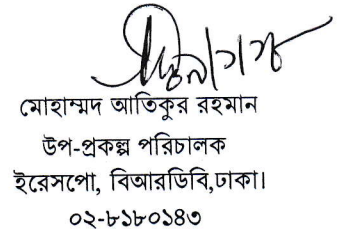 মোহাম্মদ আতিকুর রহমান
উপ-প্রকল্প পরিচালক
ইরেসপো, বিআরডিবি,ঢাকা।
০২-৮১৮০১৪৩